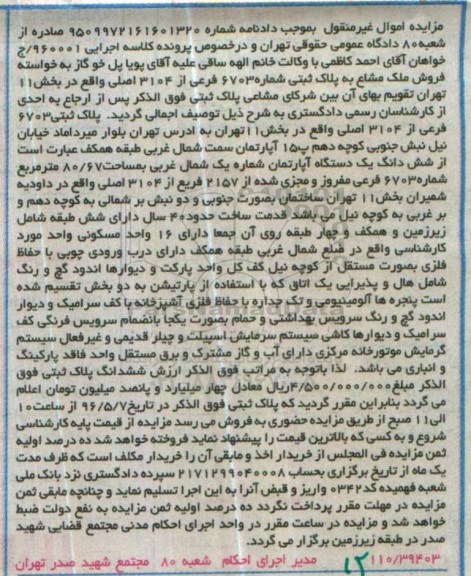 مزایده اموال غیرمنقول بموجب دادنامه شماره ۹۵۰۹۹۷۲۱۶۱۶۰۱۳۲۰ صادره از
شعبه۸۰ دادگاه عمومی حقوقی تهران و درخصوص پرونده کلاسه اجرایی ۹۶۰۰۰۱/ج
خواهان آقای احمد کاظمی با وکالت خانم الهه ساقی علیه آقای پویا پل خو گاز به خواسته
فروش ملک مشاع به پلاک ثبتی شماره۶۷۰۳ فرعی از ۳۱۰۴ اصلی واقع در بخش۱۱
تهران تقویم بهای آن بین شرکای مشاعی پلاک ثبتی فوق الذکر پس از ارجاع به احدی
از کارشناسان رسمی دادگستری به شرح ذیل توصیف اجمالی گردید. پلاک ثبتی۶۷۰۳
فرعی از ۳۱۰۴ اصلی واقع در بخش۱۱تهران به ادرس تهران بلوار میرداماد خیابان
نیل نبش جنوبی کوچه دهم پ۱۵ آپارتمان سمت شمال غربی طبقه همکف عبارت است
از شش دانگ یک دستگاه آپارتمان شماره یک شمال غربی بمساحت۸۰/۶۷ مترمربع
شماره۶۷۰۳ فرعی مفروز و مجزی شده از ۲۱۵۷ فریع از ۳۱۰۴ اصلی واقع در داودیه
شمیران بخش۱۱ تهران ساختمان بصورت جنوبی و دو نبش بر شمالی به کوچه دهم و
بر غربی به کوچه نیل می باشد قدمت ساخت حدود۴۰ سال دارای شش طبقه شامل
زیرزمین و همکف و چهار طبقه روی آن جمعا دارای ۱۶ واحد مسکونی واحد مورد
کارشناسی واقع در ضلع شمال غربی طبقه همکف دارای درب ورودی چوبی با حفاظ
فلزی بصورت مستقل از کوچه نیل کف کل واحد پارکت و دیوارها اندود گچ و رنگ
شامل هال و پذیرایی یک اتاق که با استفاده از پارتیشن به دو بخش تقسیم شده
است پنجره ها آلومینیومی و تک جداره با حفاظ فلزی آشپزخانه با کف سرامیک و دیوار
اندود گچ و رنگ سرویس بهداشتی و حمام بصورت یکجا بانضمام سرویس فرنگی کف
سرامیک و دیوارها کاشی سیستم سرمایش اسپیلت و چیلر قدیمی و غیرفعال سیستم
گرمایش موتورخانه مرکزی دارای آب و گاز مشترک و برق مستقل واحد فاقد پارکینگ
و انباری می باشد. لذا باتوجه به مراتب فوق الذکر ارزش ششدانگ پلاک ثبتی فوق
الذکر مبلغ۴/۵۰۰/۰۰۰/۰۰۰ریال معادل چهار میلیارد و پانصد میلیون تومان اعلام
می گردد بنابراین مقرر گردید که پلاک ثبتی فوق الذکر در تاریخ۹۶/۵/۷ از ساعت۱۰
الی۱۱ صبح از طریق مزایده حضوری به فروش می رسد مزایده از قیمت پایه کارشناسی
شروع و به کسی که بالاترین قیمت را پیشنهاد نماید فروخته خواهد شد ده درصد اولیه
ثمن مزایده فی المجلس از خریدار اخذ و مابقی آن را خریدار مکلف است که ظرف مدت
یک ماه از تاریخ برگزاری بحساب ۲۱۷۱۲۹۹۰۴۰۰۰۸ سپرده دادگستری نزد بانک ملی
شعبه فهمیده کد۰۳۴۲ واریز و قبض آنرا به این اجرا تسلیم نماید و چنانچه مابقی ثمن
مزایده در مهلت مقرر پرداخت نگردد ده درصد اولیه ثمن مزایده به نفع دولت ضبط
خواهد شد و مزایده در ساعت مقرر در واحد اجرای احکام مدنی مجتمع قضایی شهید
صدر در طبقه زیرزمین برگزار می گردد.
۱۱۰/۳۹۴۰۳ مدیر اجرای احکام شعبه ۸۰ مجتمع شهید صدر تهران